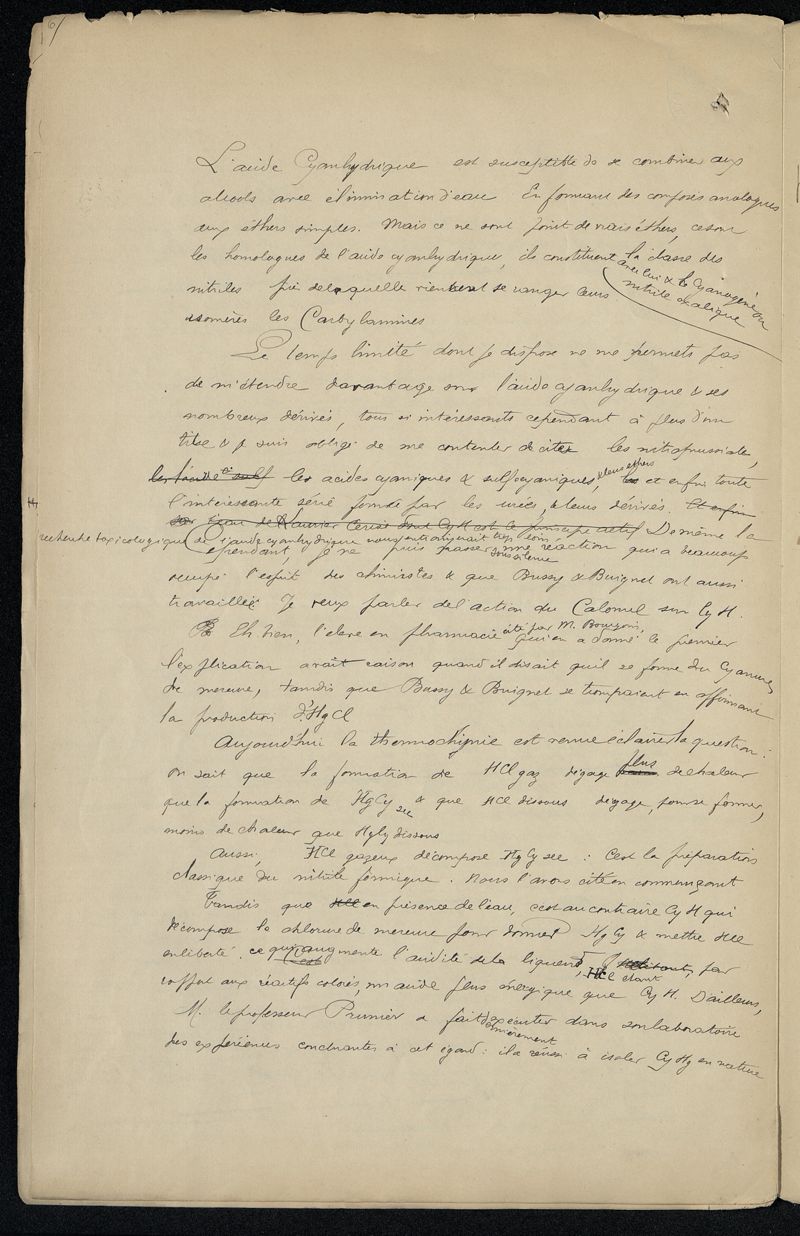 6/
L'acide Cyanhydrique est susceptible de se combiner aux
alcools avec élimination d'eau En formant des composés analogues
aux éthers simples. Mais ce ne sont point de vrais éthers, ce sont
les homologues de l'acide cyanhydrique, ils constituent la classe des
avec lui & le Cyanogène ou
nitrile oxalique
nitriles près de laquelle viennent se ranger leurs
isomères les Carbylamines
Le temps limité dont je dispose ne me permets pas
de m'étendre davantage sur l'acide cyanhydrique & ses
nombreux dérivés, tous si intéressants cependant à plus d'un
titre & je suis obligé de me contenter de citer les nitroprussiate,
les acides cyaniques & sulfocyaniques, & leurs éthers et enfin toute
l'intéressante série formée par les urées, & leurs dérivés. Et enfin
eau de Laurier Cerise dont CyH est le principe actif De même la
recherche toxicologique de l'acide cyanhydrique nous entrainerait trop loin
Cependant, je ne puis passer sous silence une réaction qui a beaucoup
occupé l'esprit des chimistes & que Bussy & Buignet ont aussi
travaillée Je veux parler de l'action du Calomel sur CyH.
Eh bien, l'élève en pharmacie cité par M. qui en a donné le premier
l'explication avait raison quand il disait qu'il se forme du Cyanure
de mercure, tandis que Bussy & Buignet se trompaient en affirmant
la production d'HgCl
Aujourd'hui la thermochimie est venue éclairer la question :
on sait que la formation de HCl gaz dégage plus de chaleur
que la formation de HgCy sec & que HCl dissous dégage, pour se former,
moins de chaleur que HgCy dissous
Aussi, HCl gazeux décompose HgCy sec : C'est la préparation
classique du nitrile formique. Nous l'avons cité en commençant
Tandis que HCl en présence de l'eau, c'est au contraire CyH qui
décompose le chlorure de mercure pour donner HgCy & mettre HCl
en liberté. ce qui augmente l'acidité de la liqueur, HCl étant, par
rapport aux réactifs colorés, un acide plus énergique que CyH. D'ailleurs,
M. le professeur Prunier a fait exécuter dernièrement dans son laboratoire
des expériences concluantes à cet égard : il a réussi à isoler CyHg en nature